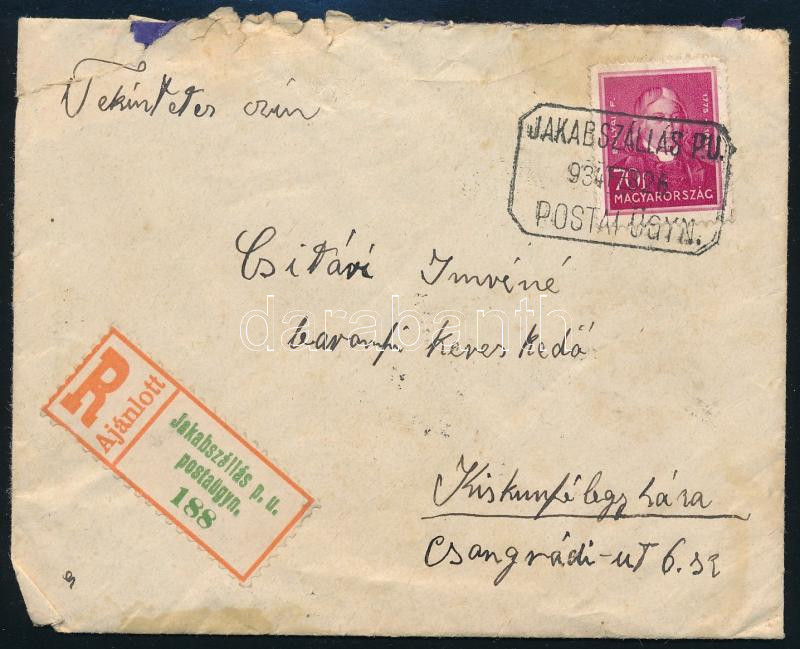 Tekintetes
JAKABSZÁLLÁS P.U.
POSTAI ÜGYN.
70
MAGYARORSZÁG
1775
Csitári Imréné
baromfi kereskedő
darabanth
R
Ajánlott
Jakabszállás p. u.
postaügyn.
188
Kiskunfélegyháza
Csongrádi-ut 6. sz